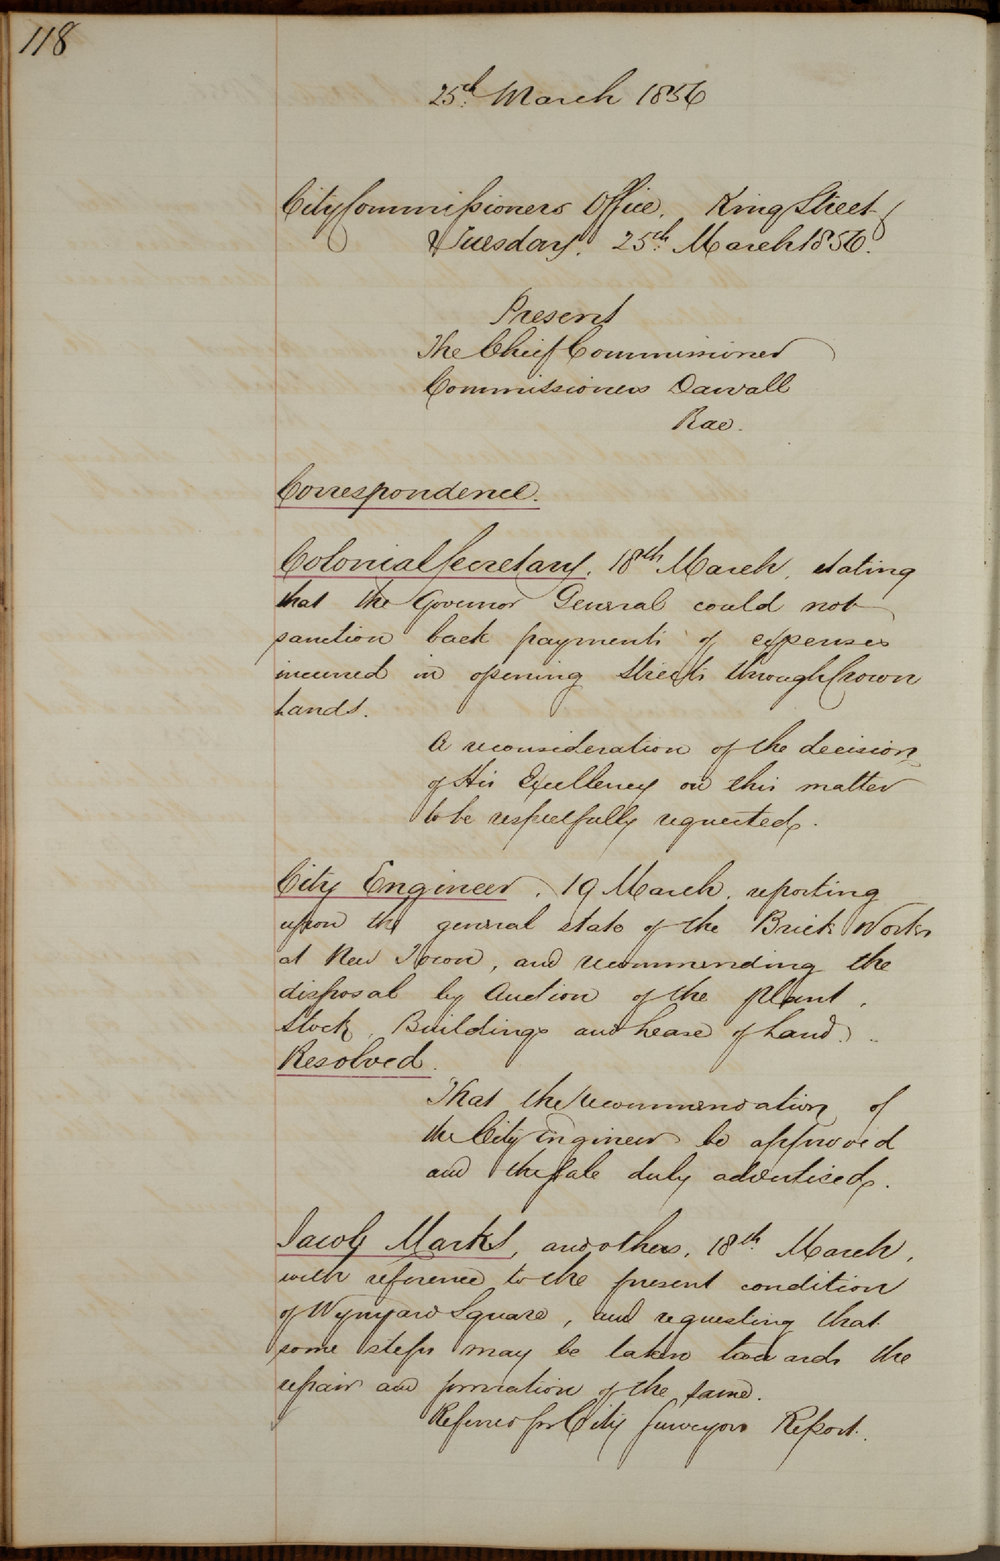 118
25th March 1856
City Commissioners Office, King Street
Tuesday, 25th March 1856.
Present
The Chief Commissioner
Commissioners Darvall
Rae.
Correspondence.
Colonial Secretary, 18th March, stating
that the Governor General could not
sanction back payments of expenses
incurred in opening streets through Crown
Lands.
A reconsideration of the decision
of His Excellency on this matter
to be respectfully requested.
City Engineer, 19 March, reporting
upon the general state of the Brick Works
at New Town, and recommending the
disposal by Auction of the plant,
Stock, Buildings and Lease of Land.
Resolved.
That the recommendation of
the City Engineer be approved
and the sale duly advertised.
Jacob Marks, and others, 18th March,
with reference to the present condition
of Wynyard Square, and requesting that
some steps may be taken towards the
repair and formation of the same.
Referred for City Surveyors Report.